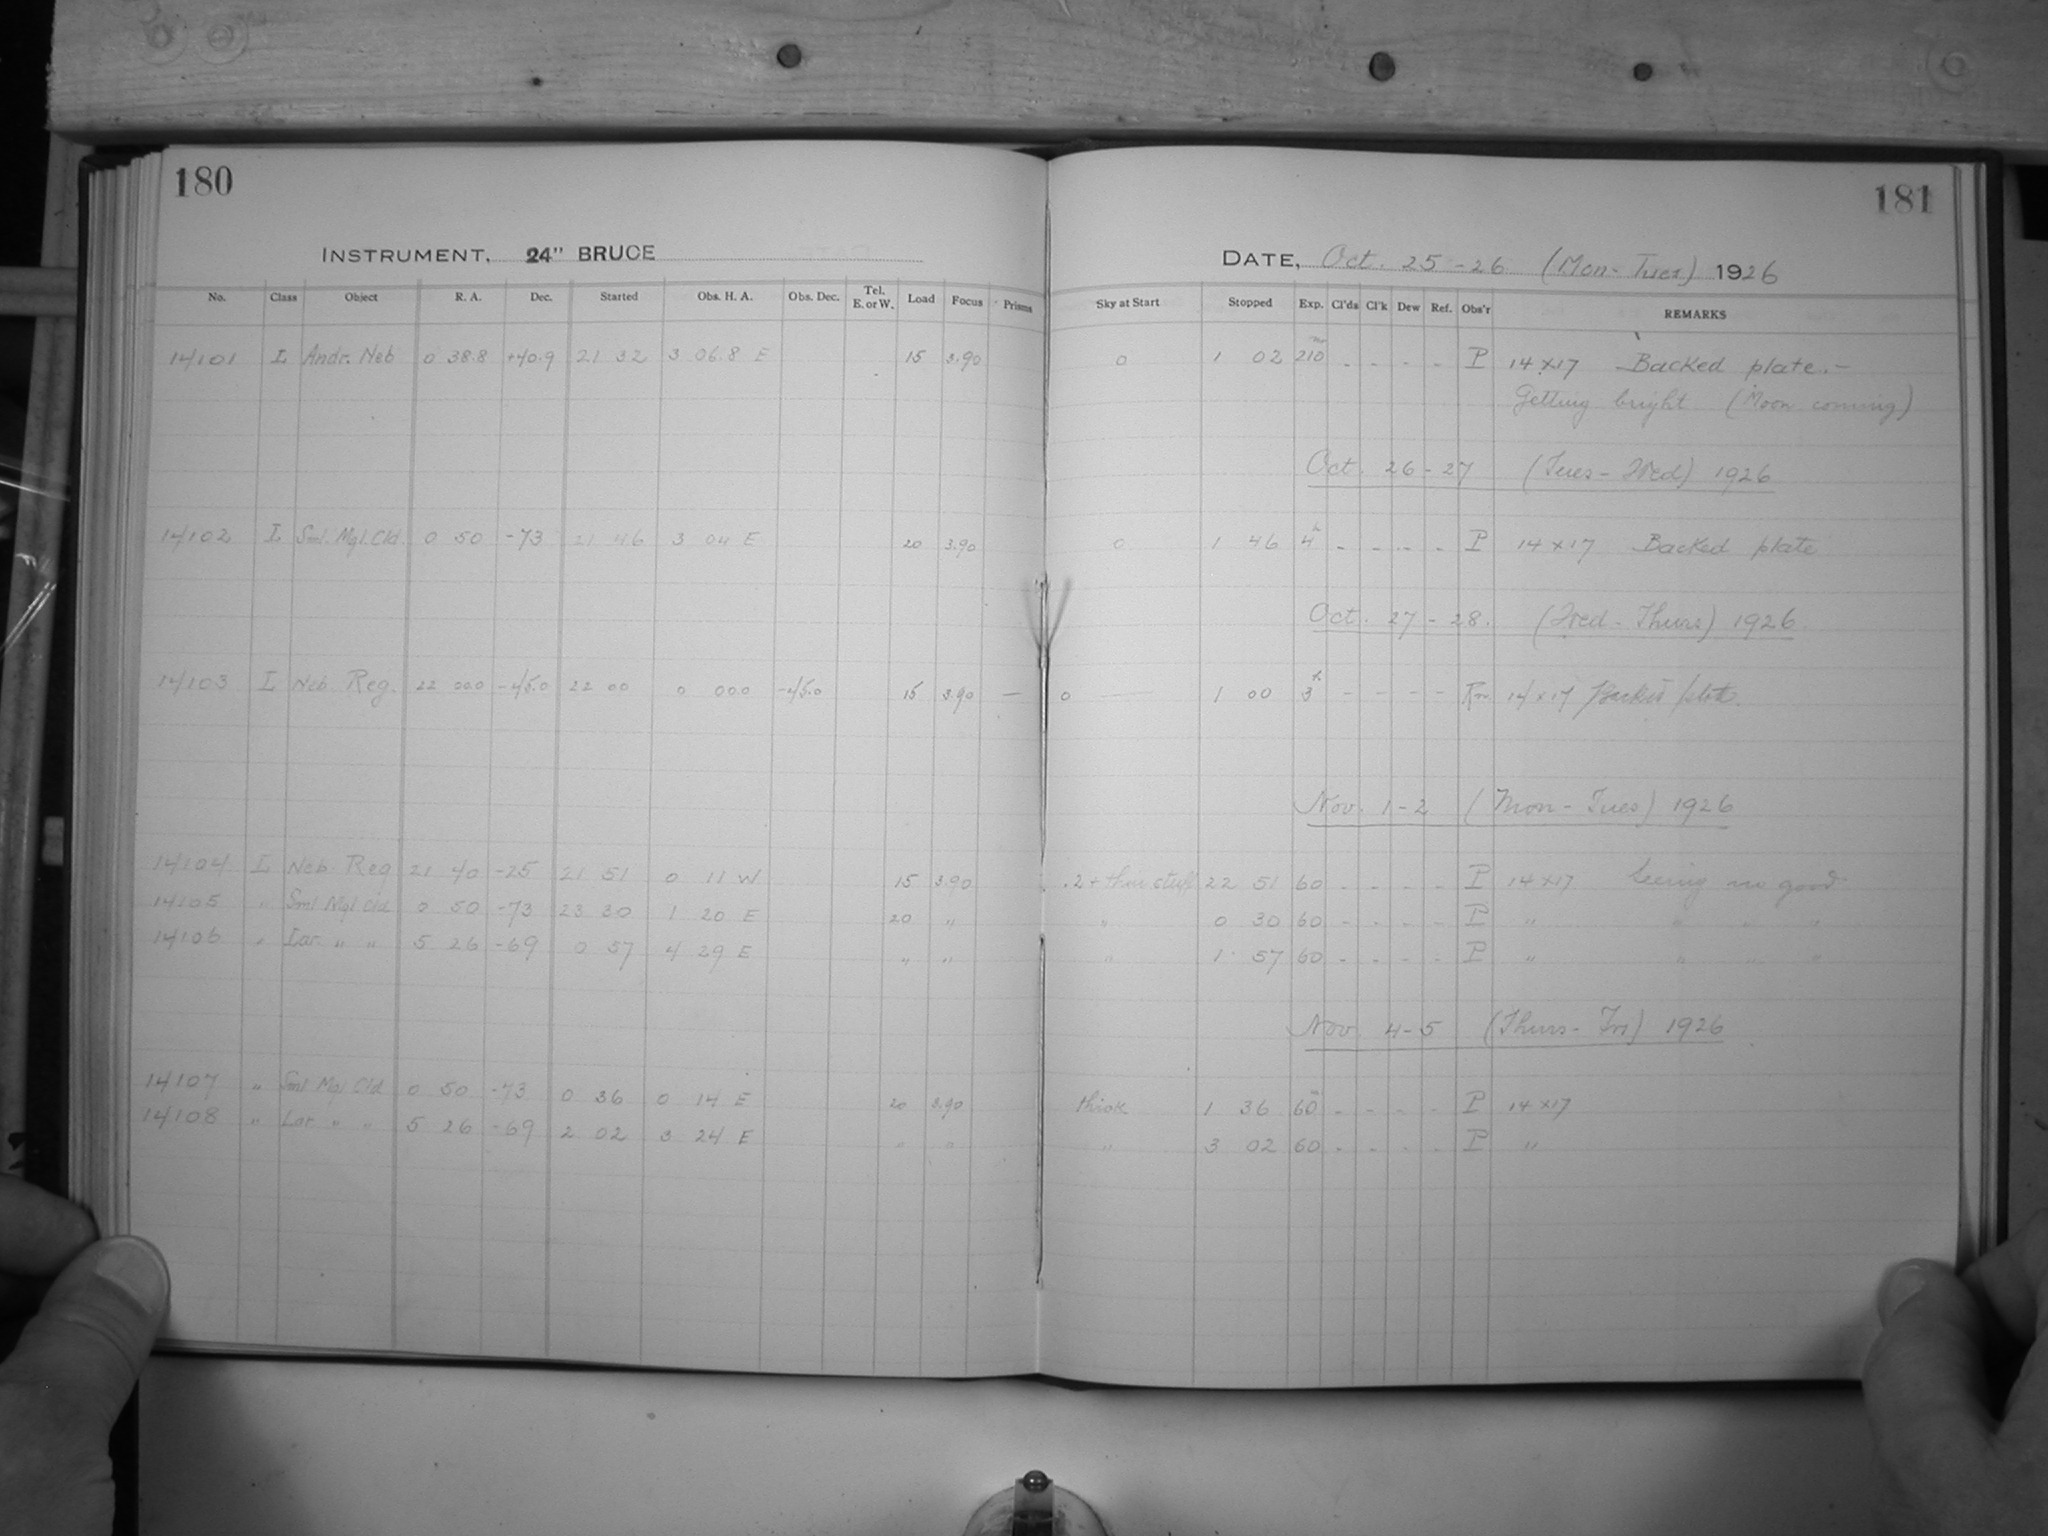 180
INSTRUMENT, 24" BRUCE
No. Class Object R. A. Dec. Started Obs. H. A. Obs. Dec. Tel. E. or W. Load Focus Prisms
14101 I Andr. Neb 0 38.8 +40.9 21 32 3 06.8 E 15 3.90
14102 I Sml. Mgl. Cld. 0 50 -73 21 46 3 04 E 20 3.90
14103 I Neb. Reg. 22 00.0 -45.0 22 00 0 00.0 -45.0 15 3.90 —
14104 I Neb Reg 21 40 -25 21 51 0 11 W 15 3.90
14105 " Sml Mgl Cld 0 50 -73 23 30 1 20 E 20 "
14106 " Lar. " " 5 26 -69 0 57 4 29 E " "
14107 " Sml Mgl Cld 0 50 -73 0 36 0 14 E 20 3.90
14108 " Lar " " 5 26 -69 2 02 3 24 E " "
181
DATE, Oct. 25-26 (Mon-Tues) 1926
Sky at Start Stopped Exp. Cl'ds Cl'k Dew Ref. Obs'r REMARKS
0 1 02 210m - - - - P 14 x 17 Backed plate.-
Getting bright (Moon coming)
Oct. 26-27 (Tues-Wed) 1926
0 1 46 4h - - - - P 14 x 17 Backed plate
Oct. 27-28. (Wed-Thurs) 1926.
0 — 1 00 3h - - - - 14 x 17 Backed plate.
Nov. 1-2 (Mon-Tues) 1926
.2 + thin stuff 22 51 60 - - - - P 14 x 17 Seeing no good
" 0 30 60 - - - - P " " " "
" 1 57 60 - - - - P " " " "
Nov. 4-5 (Thurs-Fri) 1926
thick 1 36 60m - - - - P 14 x 17
" 3 02 60 - - - - P "